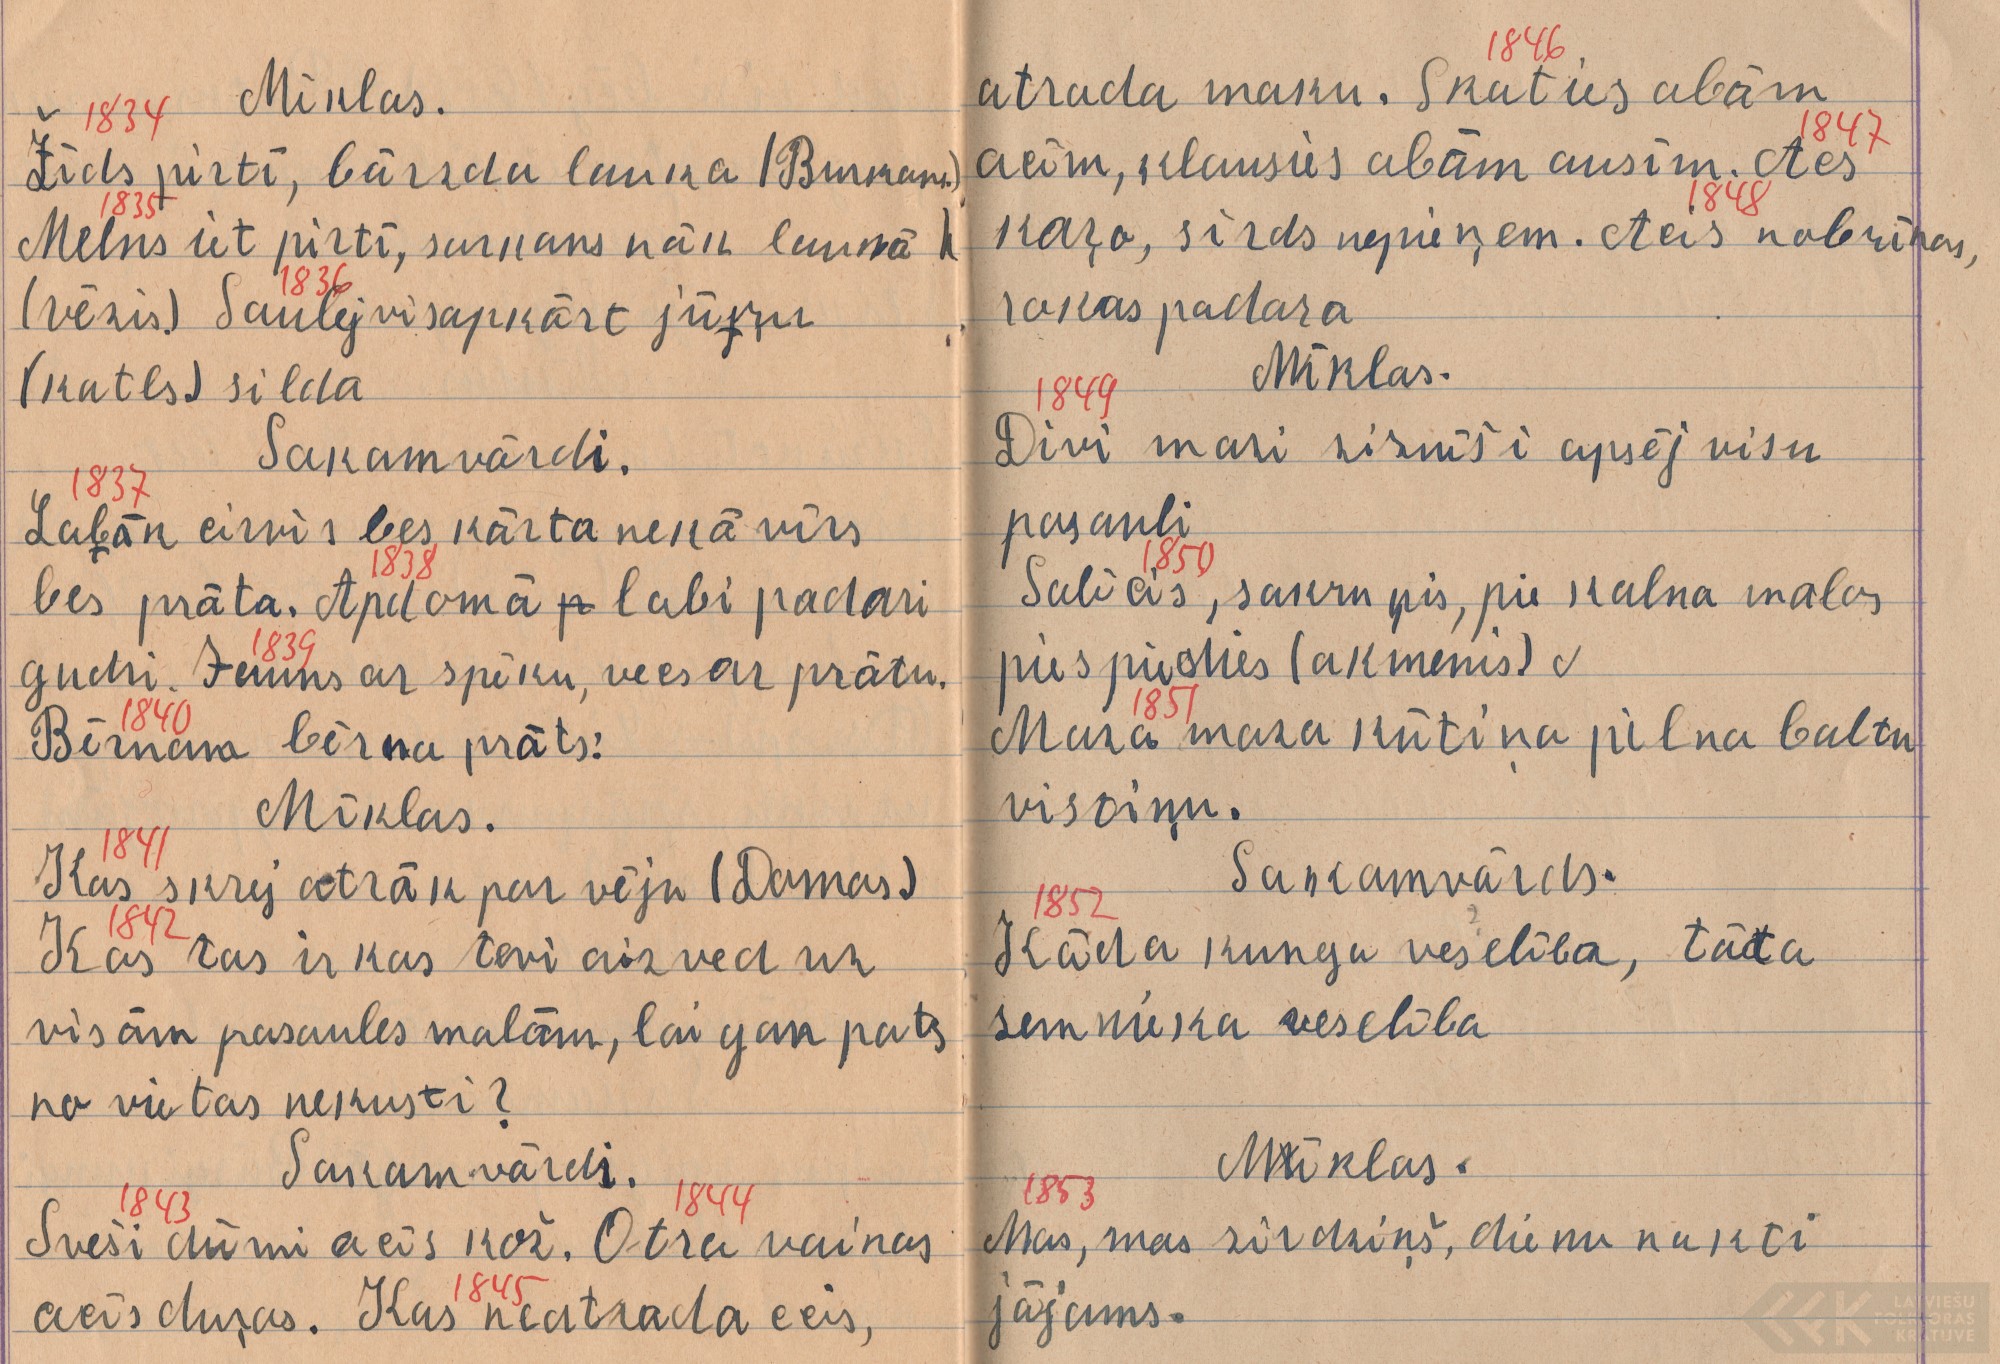 Mīklas.
1834
Žīds pirtī, bārzda lauka (Burkans.)
1835
Melns iet pirtī, sarkans nāk laukā
1836
(vēzis.) Saulej visapkārt jūŗŗu
(katls.) silda
Sakamvārdi.
1837
Labāk cirvis bes kārta nekā vīrs
1838
bes prāta. Apdomā labi padari
1839
gudri. Jauns ar spēku, vecs ar prātu.
1840
Bērnam bērna prāts:
Mīklas.
1841
Kas skrej atrāk par vēju (Domas)
1842
Kas tas ir kas tevi aizved uz
visām pasaules malām, lai gan pats
no vietas nekusti?
Sakamvārdi.
1843 1844
Sveši dūmi acīs kož. Otra vainas
1845
acīs duŗas. Kas neatrada ceis,
1846
atrada maku. Skaties abām
1847
acīm, klausies abām ausīm. Aes
1848
kaŗo, sirds nepieņem. Aeis nobrīnas,
rokas padara
Mīklas.
1849
Divi mazi zirnīši apsēj visu
pasauli
1850
Salicis, sakrupis, pie kalna malas
piespiedies (akmenis)
1851
Maza maza kūtiņa pilna baltu
vistiņu.
Sakamvārds.
1852
Kāda kunga veselība, tāda
semnieka veselība
Mīklas.
1853
Mas, mas zirdziņš, dienu nakti
jājams.
LATVIEŠU
FOLKLORAS
KRĀTUVE